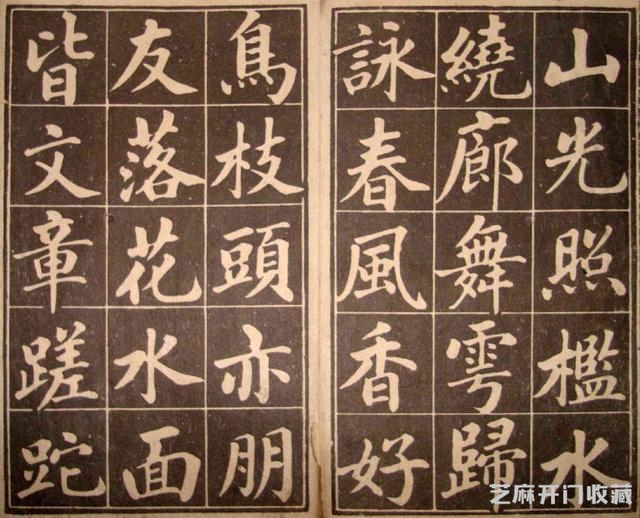 山光照檻水
繞廊舞雩歸
詠春風香好
鳥枝頭亦朋
友落花水面
皆文章蹉跎
芝麻开门收藏